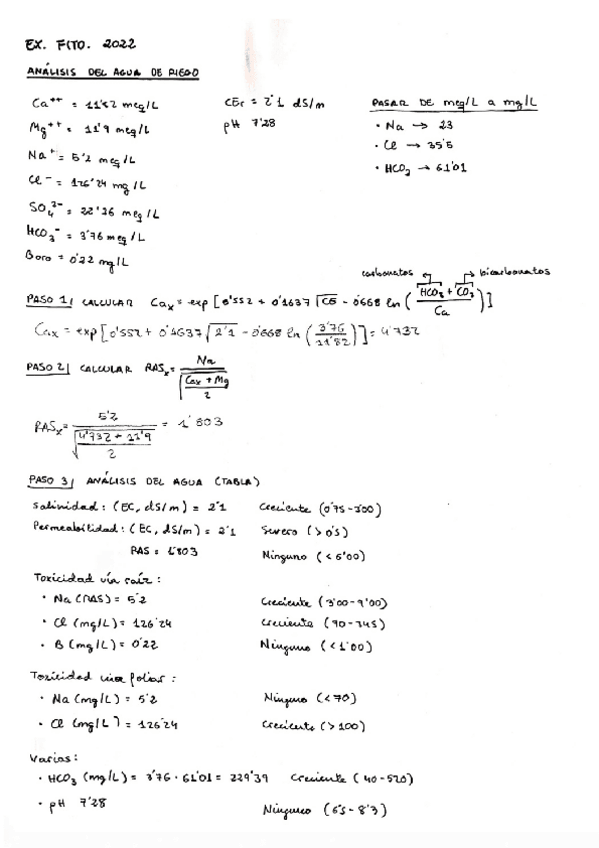 EX. FITO. 2022
ANÁLISIS DEL AGUA DE RIEGO
Ca⁺⁺ = 11'82 meq/L
Mg⁺⁺ = 11'9 meq/L
Na⁺ = 5'2 meq/L
Cl⁻ = 126'24 mg/L
SO₄²⁻ = 22'26 meq/L
HCO₃⁻ = 3'76 meq/L
Boro = 0'22 mg/L
CEr = 2'1 dS/m
pH 7'28
PASAR DE meq/L a mg/L
· Na → 23
· Cl → 35'5
· HCO₃ → 61'01
carbonatos bicarbonatos
PASO 1/ CALCULAR Caₓ = exp [0'552 + 0'1637 √CE - 0'668 ln (HCO₃ + CO₃ / Ca)]
Caₓ = exp [0'552 + 0'1637 √2'1 - 0'668 ln (3'76 / 11'82)] = 4'732
PASO 2/ CALCULAR RASₓ = Na / √(Caₓ + Mg / 2)
RASₓ = 5'2 / √(4'732 + 11'9 / 2) = 1'803
PASO 3/ ANÁLISIS DEL AGUA (TABLA)
Salinidad: (EC, dS/m) = 2'1 Creciente (0'75-3'00)
Permeabilidad: (EC, dS/m) = 2'1 Severo (> 0'5)
RAS = 1'803 Ninguno (< 6'00)
Toxicidad vía raíz:
· Na (RAS) = 5'2 Creciente (3'00-9'00)
· Cl (mg/L) = 126'24 Creciente (70-345)
· B (mg/L) = 0'22 Ninguno (< 1'00)
Toxicidad via foliar:
· Na (mg/L) = 5'2 Ninguno (<70)
· Cl (mg/L) = 126'24 Creciente (> 100)
Varias:
· HCO₃ (mg/L) = 3'76 · 61'01 = 229'39 Creciente (40-520)
· pH 7'28 Ninguno (6'5 - 8'3)